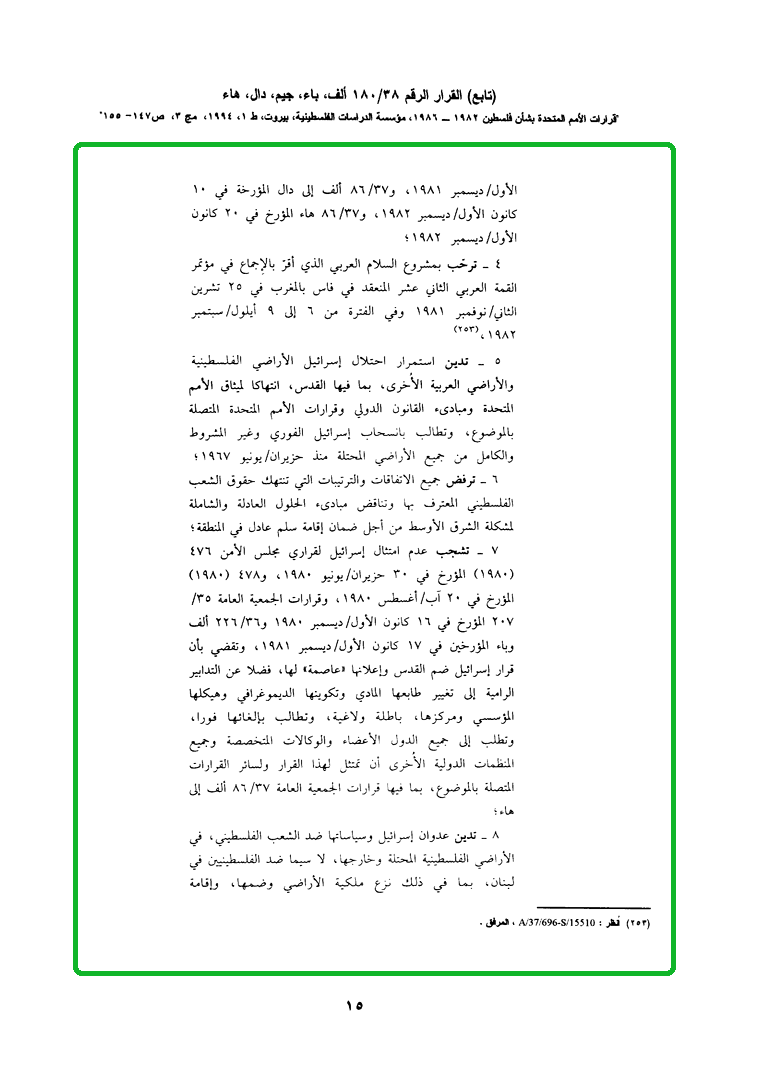 (تابع) القرار الرقم ١٨٠/٣٨ ألف، باء، جيم، دال، هاء
"قرارات الأمم المتحدة بشأن فلسطين ١٩٨٢ ــ ١٩٨٦، مؤسسة الدراسات الفلسطينية، بيروت، ط ١، ١٩٩٤، مج ٣، ص١٤٧- ١٥٥"
الأول/ديسمبر ١٩٨١، و٨٦/٣٧ ألف إلى دال المؤرخة في ١٠
كانون الأول/ديسمبر ١٩٨٢، و٨٦/٣٧ هاء المؤرخ في ٢٠ كانون
الأول/ديسمبر ١٩٨٢؛
٤ ـ ترحّب بمشروع السلام العربي الذي أقرّ بالإجماع في مؤتمر
القمة العربي الثاني عشر المنعقد في فاس بالمغرب في ٢٥ تشرين
الثاني/نوفمبر ١٩٨١ وفي الفترة من ٦ إلى ٩ أيلول/سبتمبر
١٩٨٢،(٢٥٣)
٥ ـ تدين استمرار احتلال إسرائيل الأراضي الفلسطينية
والأراضي العربية الأخرى، بما فيها القدس، انتهاكا لميثاق الأمم
المتحدة ومبادىء القانون الدولي وقرارات الأمم المتحدة المتصلة
بالموضوع، وتطالب بانسحاب إسرائيل الفوري وغير المشروط
والكامل من جميع الأراضي المحتلة منذ حزيران/يونيو ١٩٦٧؛
٦ ـ ترفض جميع الاتفاقات والترتيبات التي تنتهك حقوق الشعب
الفلسطيني المعترف بها وتناقض مبادىء الحلول العادلة والشاملة
لمشكلة الشرق الأوسط من أجل ضمان إقامة سلم عادل في المنطقة؛
٧ ـ تشجب عدم امتثال إسرائيل لقراري مجلس الأمن ٤٧٦
(١٩٨٠) المؤرخ في ٣٠ حزيران/يونيو ١٩٨٠، و٤٧٨ (١٩٨٠)
المؤرخ في ٢٠ آب/أغسطس ١٩٨٠، وقرارات الجمعية العامة ٣٥/
٢٠٧ المؤرخ في ١٦ كانون الأول/ديسمبر ١٩٨٠ و٢٢٦/٣٦ ألف
وباء المؤرخين في ١٧ كانون الأول/ديسمبر ١٩٨١، وتقضي بأن
قرار إسرائيل ضم القدس وإعلانها «عاصمة» لها، فضلا عن التدابير
الرامية إلى تغيير طابعها المادي وتكوينها الديموغرافي وهيكلها
المؤسسي ومركزها، باطلة ولاغية، وتطالب بإلغائها فورا،
وتطلب إلى جميع الدول الأعضاء والوكالات المتخصصة وجميع
المنظمات الدولية الأخرى أن تمتثل لهذا القرار ولسائر القرارات
المتصلة بالموضوع، بما فيها قرارات الجمعية العامة ٨٦/٣٧ ألف إلى
هاء؛
٨ ـ تدين عدوان إسرائيل وسياساتها ضد الشعب الفلسطيني، في
الأراضي الفلسطينية المحتلة وخارجها، لا سيما ضد الفلسطينيين في
لبنان، بما في ذلك نزع ملكية الأراضي وضمها، وإقامة
(٢٥٣) أنظر : A/37/696-S/15510 ، المرفق .
١٥